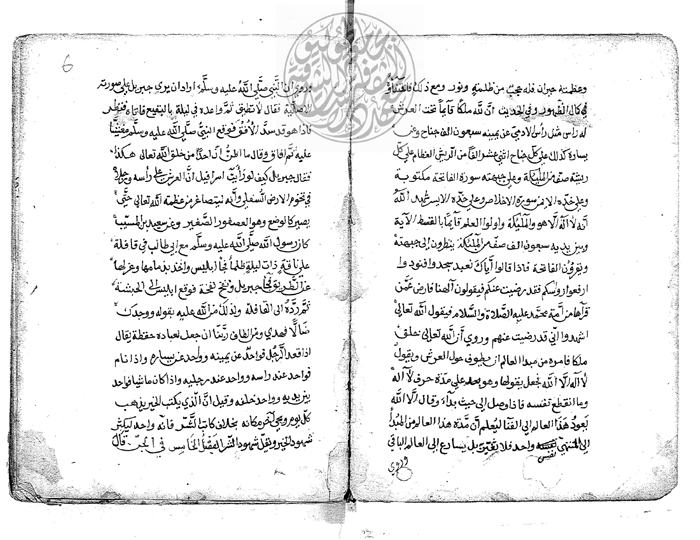 وعظمته جبران فله حجب من ظلمة ونور ومع ذلك
في كمال الظهور وفي الحديث أن لله ملكا قائما تحت العرش
له راس مثل راس الآدمي عن يمينه سبعون الف جناح وعن
يساره كذلك على كل جناح اثنى عشر الفا من الريش العظام على كل
ريشة صف من الملئكة وعلى جبهته سورة الفاتحة مكتوبة
وعلى خده الايمن سورة الاخلاص وعلى خده الايسر شهد الله
أنه لا اله الا هو والملئكة واولوا العلم قائما بالقسط الآية
وبين يديه سبعون الف صف من الملئكة ينظرون الى جبهته
ويقرؤن الفاتحة فاذا قالوا اياك نعبد سجدوا فنودوا
ارفعوا رؤسكم فقد رضيت عنكم فيقولون آلهنا فارض عمن
قراها من امة محمد عليه الصلاة والسلام فيقول الله تعالى
اشهدوا اني قد رضيت عنهم وروي أن الله تعالى خلق
ملكا فامره من مبدا العالم ان يطوف حول العرش ويقول
لا اله الا الله فجعل يقولها وهو على مدة حرف لا اله
وما انقطع نفسه فاذا وصل الى حيث بدا وقال الا الله
يعود هذا العالم الى الفنا ليعلم أن مدة هذا العالم من المبدا
الى المنتهى نفس واحد فلا يغتر به بل يسارع الى العالم الباقي
وروي
وروي أن النبي صلى الله عليه وسلم اراد ان يرى جبريل على صورته
الاصلية فقال لا تطيق ثم واعده في ليلة بالبقيع فاتاه فنظر
فاذا هو قد سد الافق فوقع النبي صلى الله عليه وسلم مغشيا
عليه ثم افاق وقال ما اظن أن احدا من خلق الله تعالى هكذا
فقال جبريل كيف لو رأيت اسرافيل أن العرش على راسه ورجلاه
في تخوم الارض السفلى وأنه ليتصاغر من عظمة الله تعالى حتى
يصير كالوضع وهو العصفور الصغير وعن سعيد بن المسيب
كان رسول الله صلى الله عليه وسلم مع ابي طالب في قافلة
على ناقة ذات ليلة ظلماء فجا ابليس واخذ بزمامها وعدل بها
عن الطريق فجا جبريل ونفخ نفخة فوقع ابليس الى الحبشة
ثم رده الى القافلة ولذلك من الله عليه بقوله ووجدك
ضالا فهدى ومن الطاف ربنا ان جعل لعباده حفظة يقال
اذا قعد الرجل فواحد عن يمينه وواحد عن يساره واذا نام
فواحد عند راسه وواحد عند رجليه واذا كان ماشيا فواحد
بين يديه وواحد خلفه وقيل أن الذي يكتب الخير يذهب
كل يوم ويجي آخر مكانه بخلاف كاتب الشر فانه واحد ليكثر
شهود الخير ويقل شهود الشر الفصل الخامس في الجن قال
6